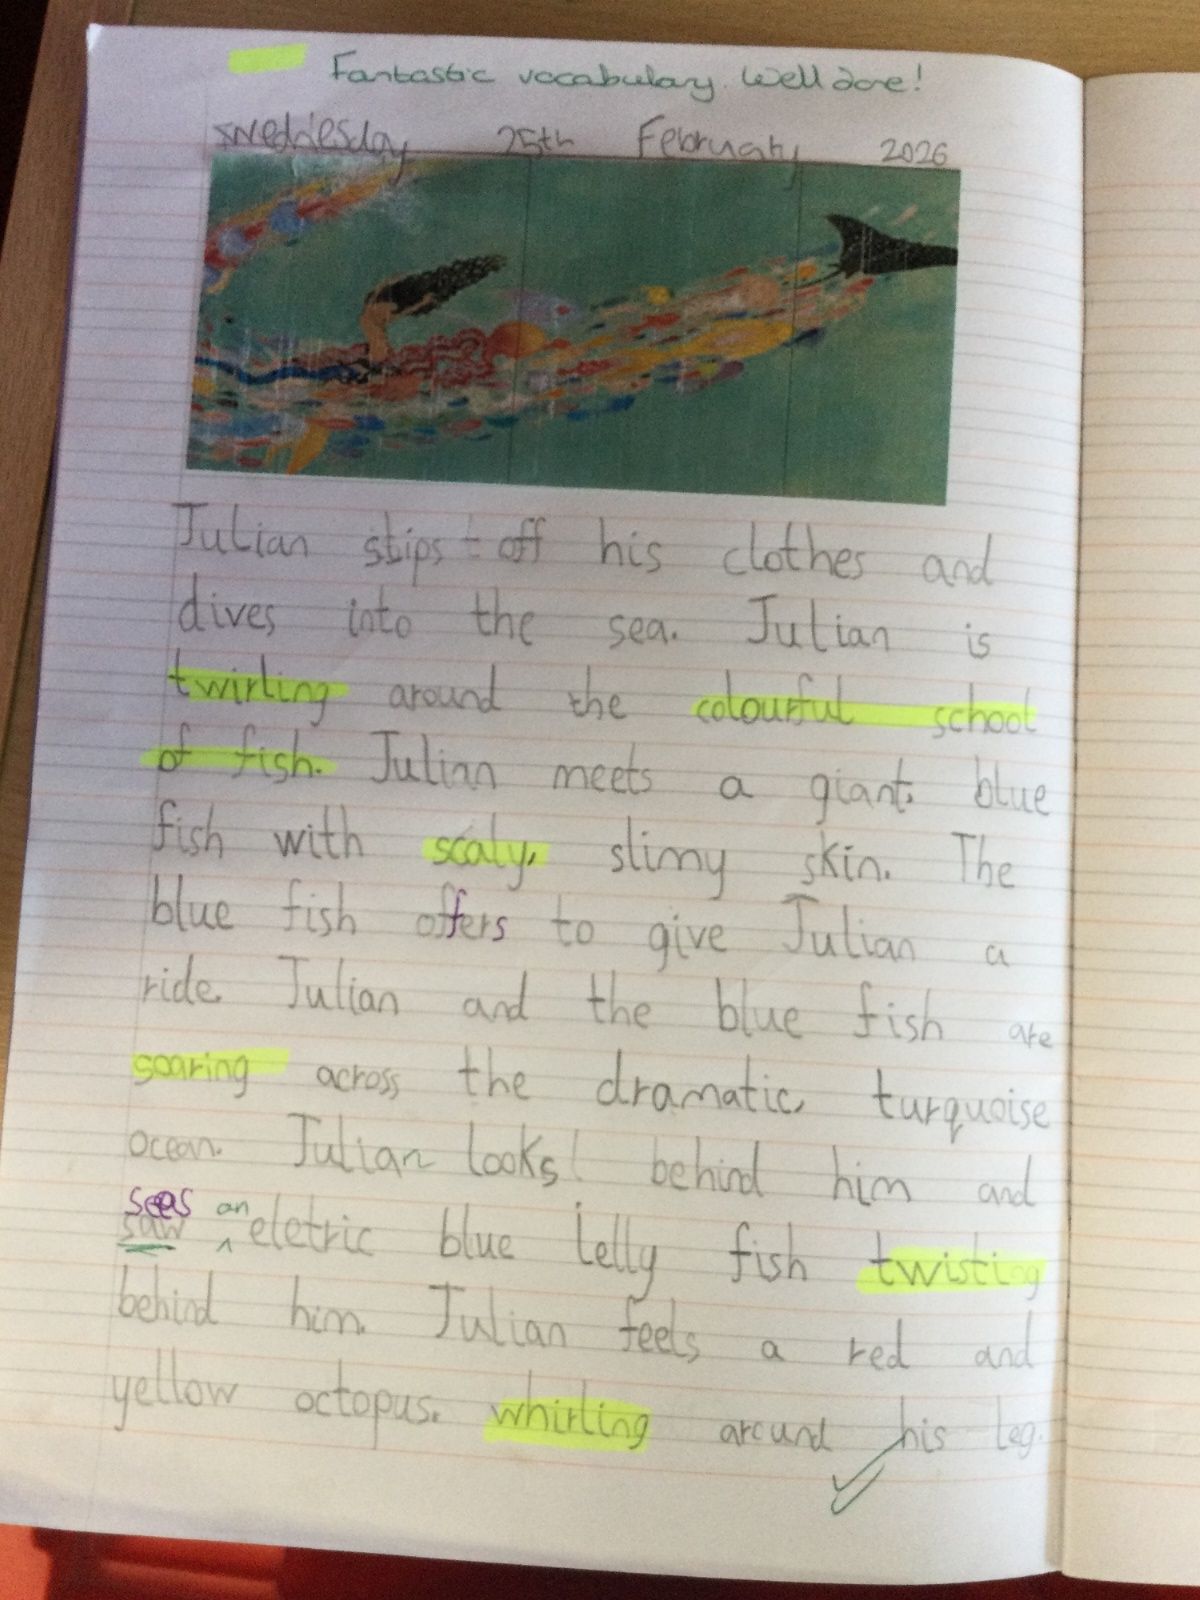 Fantastic vocabulary. Well done!
Wednesday 25th February 2026
Julian stips off his clothes and
dives into the sea. Julian is
twirling around the colourful school
of fish. Julian meets a giant, blue
fish with scaly, slimy skin. The
blue fish offers to give Julian a
ride. Julian and the blue fish are
soaring across the dramatic, turquoise
ocean. Julian looks behind him and
sees an
saw eletric blue jelly fish twisting
behind him. Julian feels a red and
yellow octopus. whirling around his leg.